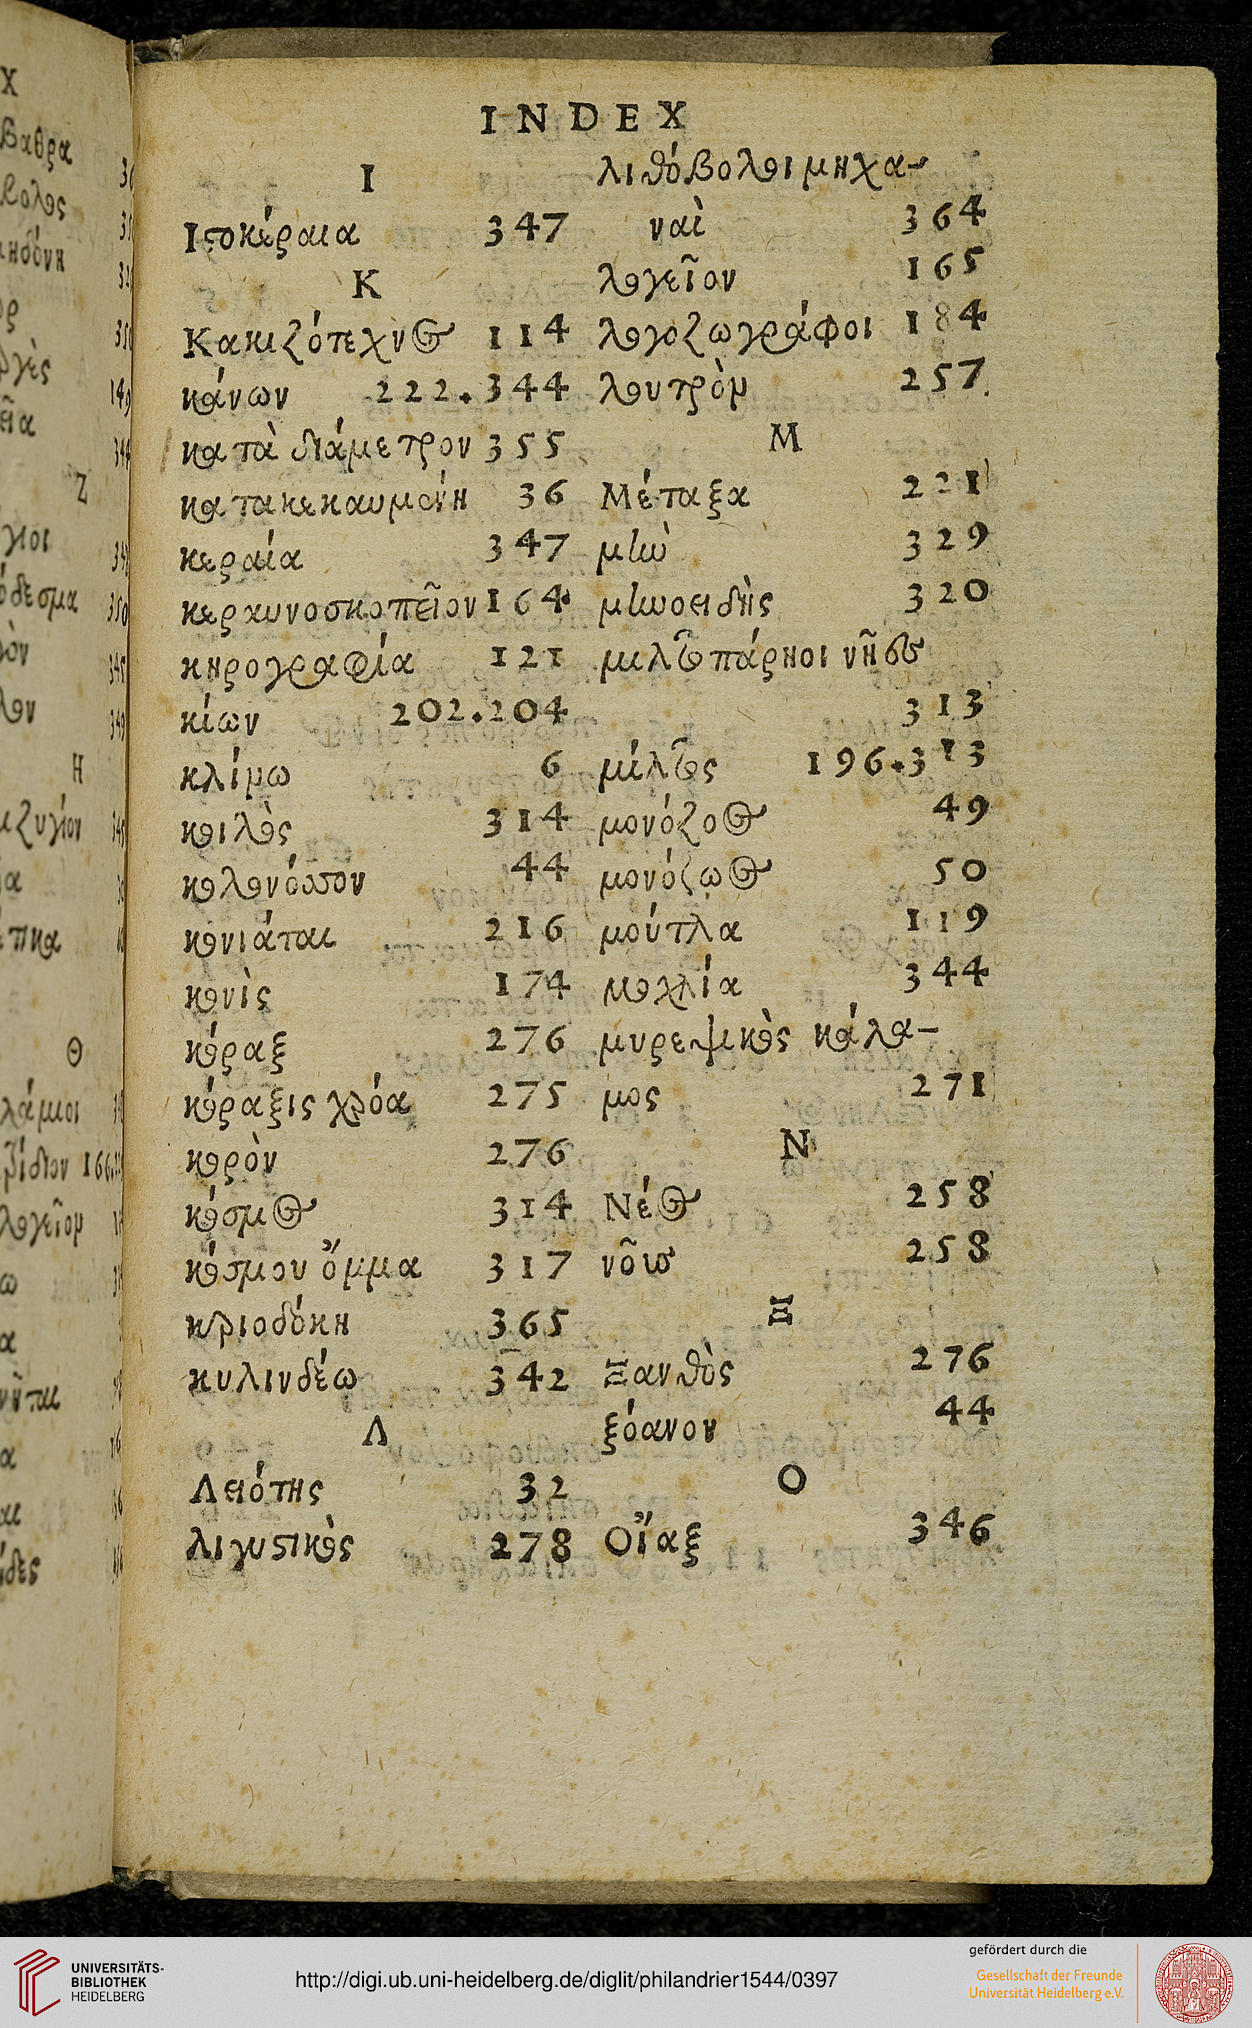 INDEX
Ι
Ιστοκέραια 347
Κ
Κακιζότεχνος 114
κάνων 222.344
κατὰ διάμετρον 355
κατακεκαυμένη 36
κεραία 347
κεραυνοσκοπεῖον 164
κηρογραφία 121
κίων 202.204
κλίμω 6
κοιλὸς 314
κολονόσσον 44
κονιάται 216
κονὶς 174
κόραξ 276
κόραξις χρόα 275
κορὸν 276
κόσμος 314
κόσμου ὄμμα 317
κριοδόκη 365
κυλινδέω 342
Λ
Λειότης 32
λιγυστικὸς 278
λιθόβολοι μηχα-
ναὶ 364
λογεῖον 165
λογοζωγράφοι 184
λουτρὸν 257
Μ
Μέταξα 221
μὺω 329
μυωοειδὴς 320
μιλτοπάρηοι νῆες
313
μίλτος 196.313
μονόζος 49
μονόζωος 50
μούτλα 119
μοχλία 344
μυρεψικὸς κάλα-
μος 271
Ν
Νέος 258
258
Ξ
Ξανθὸς 276
ξόανον 44
Ο
Οἴαξ 346
UNIVERSITÄTS-
BIBLIOTHEK
HEIDELBERG
http://digi.ub.uni-heidelberg.de/diglit/philandrier1544/0397
gefördert durch die
Gesellschaft der Freunde
Universität Heidelberg e.V.